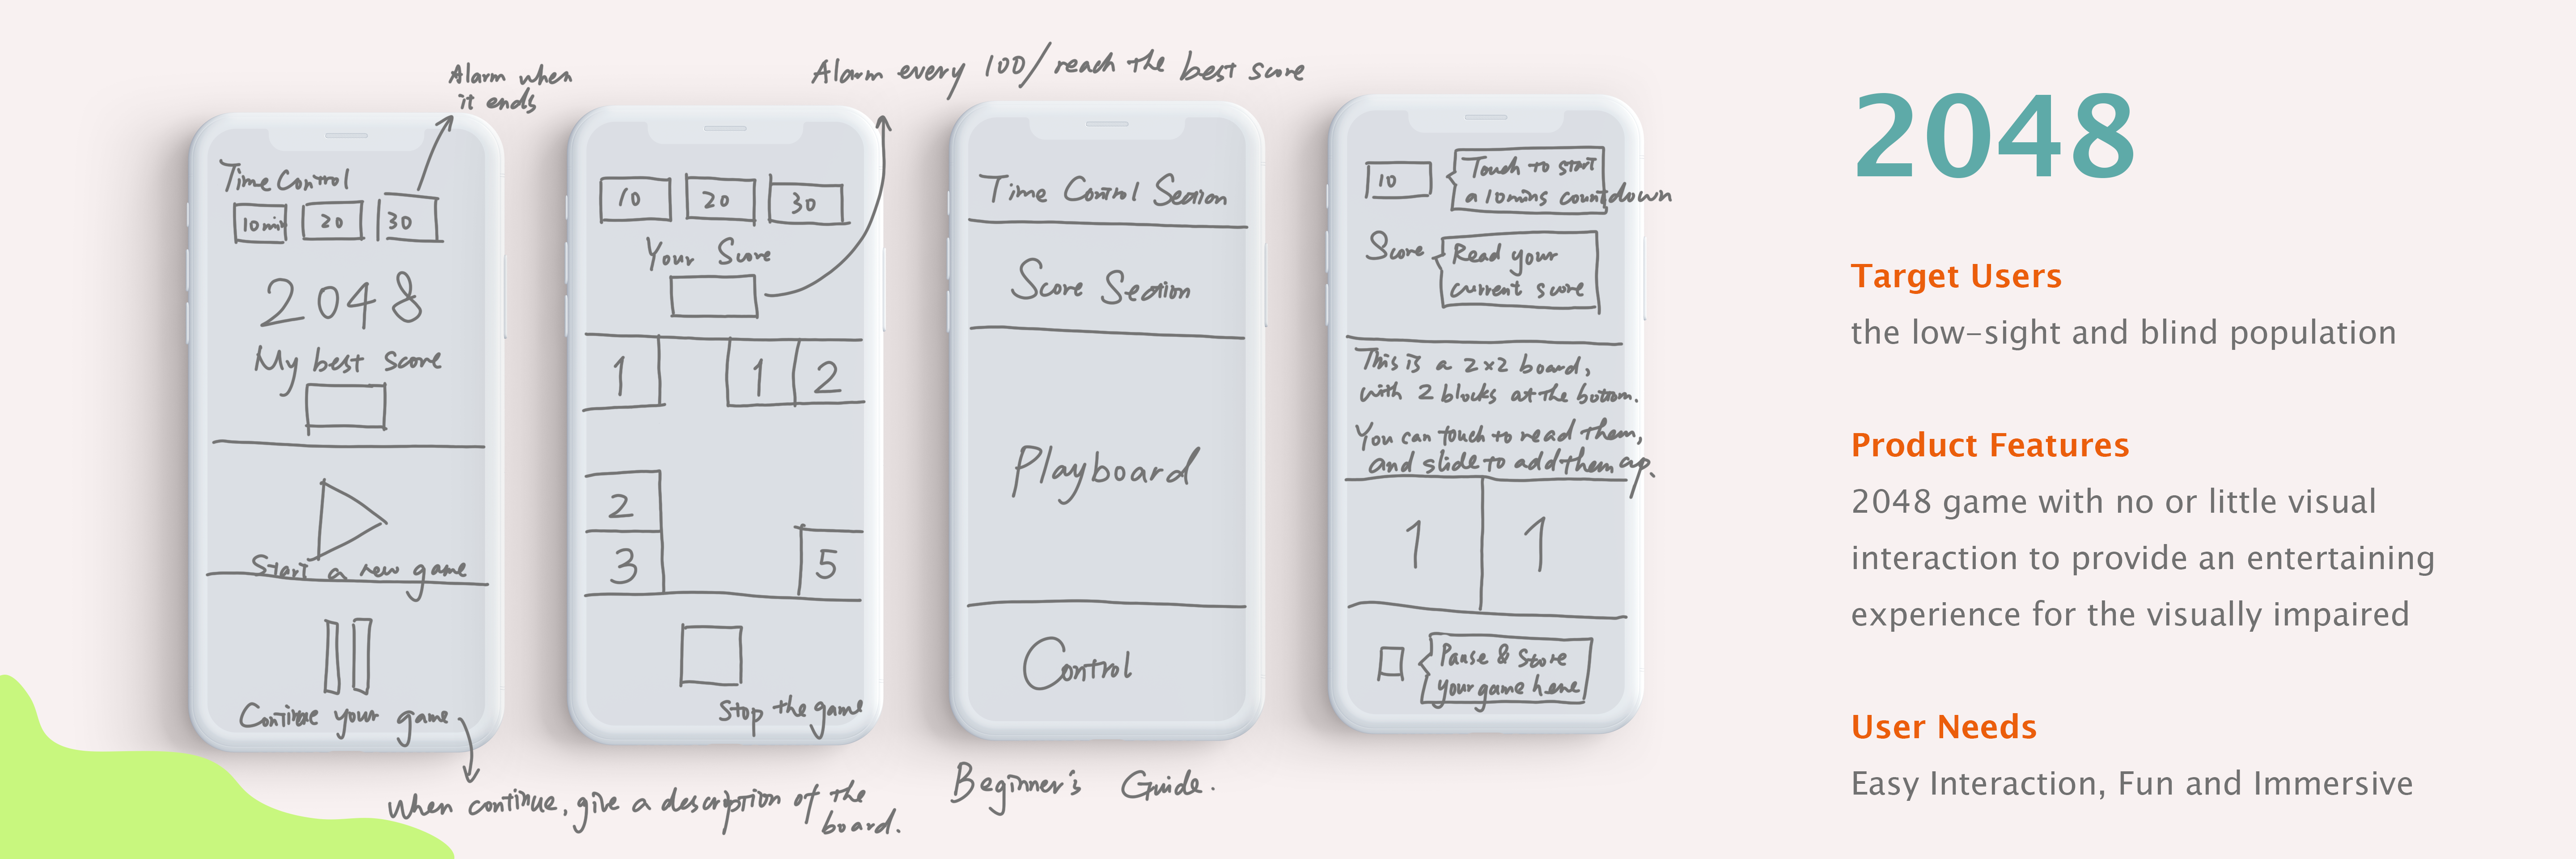 Alarm when
it ends
Time Control
10min 20 30
2048
My best score
Start a new game
Continue your game
When continue, give a description of the
board.
Alarm every 100/reach the best score
10 20 30
Your Score
1 1 2
2
3 5
Stop the game
Time Control Section
Score Section
Playboard
Control
Beginner's Guide.
10
Touch to start
a 10mins countdown
Score
Read your
current score
This is a 2×2 board,
with 2 blocks at the bottom.
You can touch to read them,
and slide to add them up.
1 1
Pause & Store
your game here
2048
Target Users
the low-sight and blind population
Product Features
2048 game with no or little visual
interaction to provide an entertaining
experience for the visually impaired
User Needs
Easy Interaction, Fun and Immersive